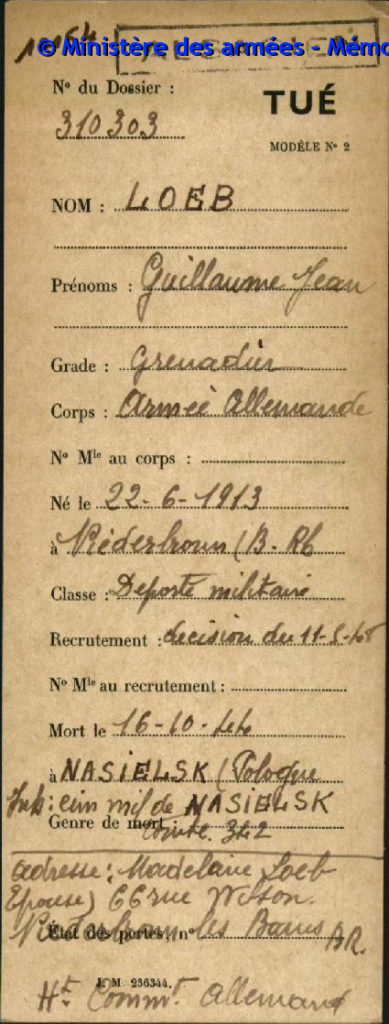 © Ministère des armées - Mémo
N° du Dossier :
310303
TUÉ
MODÈLE N° 2
NOM : LOEB
Prénoms : Guillaume Jean
Grade : Grenadier
Corps : Armée Allemande
N° Mle au corps :
Né le 22-6-1913
à Niederbronn (B. Rh
Classe : Déporté militaire
Recrutement : décision du 11-5-
N° Mle au recrutement :
Mort le 16-10-44
à NASIELSK (Pologne
Inh : cim mil de NASIELSK
Genre de mort Tombe 342
adresse : Madeleine Loeb
Epouse) 66 rue Wilson.
Niederbronn les Bains BR.
État des pertes, n°
J. M. 236344.
Ht Commt Allemand